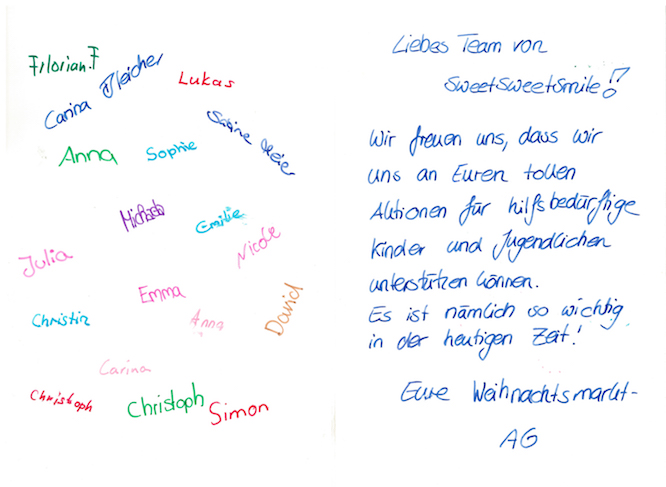 Florian F
Carina Fleicher
Lukas
Anna
Sophie
Sabine Meier
Michaela
Emilie
Nicole
Julia
Emma
Christin
Anna
David
Carina
Christoph
Christoph
Simon
Liebes Team von
SweetSweetSmile!?
Wir freuen uns, dass wir
uns an Euren tollen
Aktionen für hilfsbedürftige
Kinder und Jugendlichen
unterstützen können.
Es ist nämlich so wichtig
in der heutigen Zeit!
Eure Weihnachtsmarkt-
AG